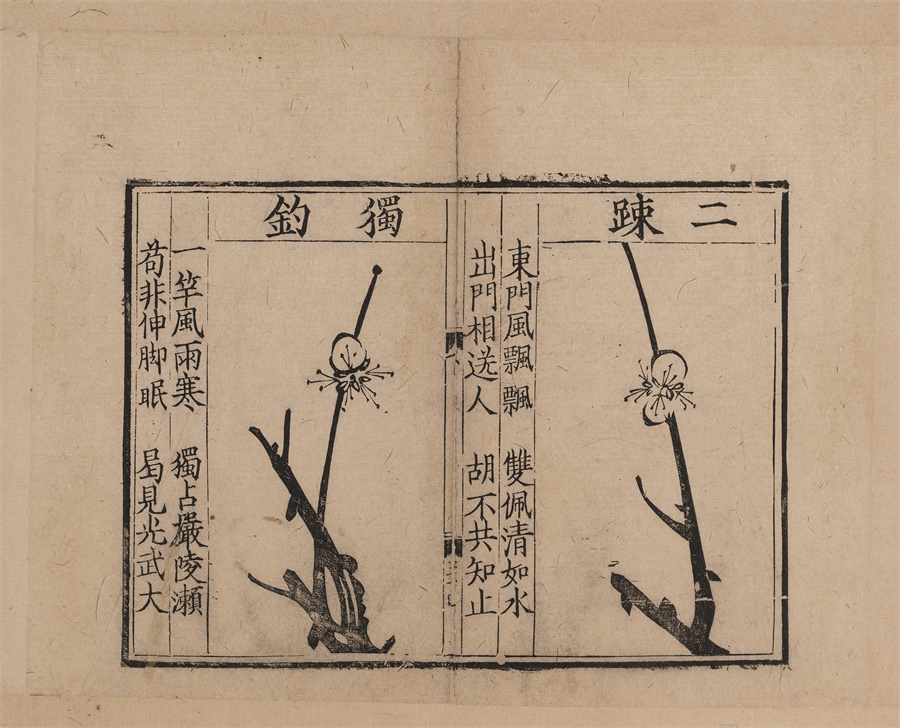 二踈
東門風飄飄 雙佩清如水
出門相送人 胡不共知止
獨釣
一竿風雨寒 獨占嚴陵瀬
苟非伸脚眠 曷見光武大